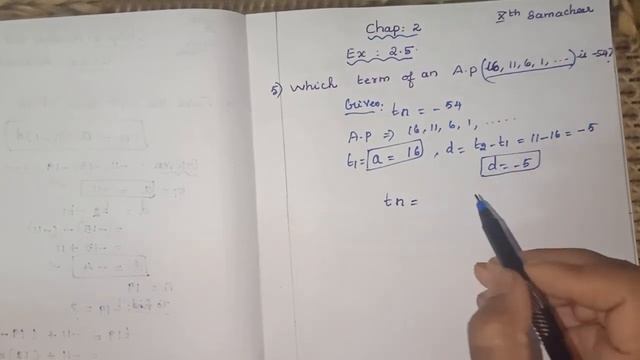 Xth Samacheer
Chap: 2
Ex : 2.5.
5) Which term of an A.P (16, 11, 6, 1, ... is -54?
Given: tn = -54
A.P => 16, 11, 6, 1, .....
t1 = a = 16 , d = t2 - t1 = 11 - 16 = -5
d = -5
tn =